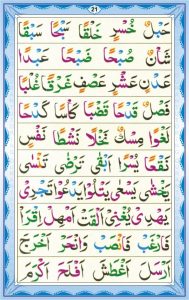 21
حَبْلٌ خُسْرٍ خَلْقًا سَبْحًا سَبْقًا
شَأْنٌ صُبْحًا ضَبْحًا عَبْدًا
عَدْنٍ عَشْرٍ عَصْفٍ غَرْقًا غُلْبًا
فَصْلٌ قَدْحًا قَضْبًا كَأْسًا كَدْحًا
لَغْوًا مِسْكٌ نَخْلًا نَشْطًا نَفْسٍ
نَقْعًا يُسْرًا اَبْقٰى تَرْضٰى تَنْسٰى
يَخْشٰى يَسْعٰى يَتْلُوْا يَدْعُوْا تَجْرِىْ
يَهْدِىْ يُغْنِىْ اَلْقَتْ اَمْهِلْ اِقْرَاْ
فَارْغَبْ فَانْصَبْ وَانْحَرْ اَخْرَجَ
اَرْسَلَ اَغْطَشَ اَفْلَحَ اَكْرَمَ